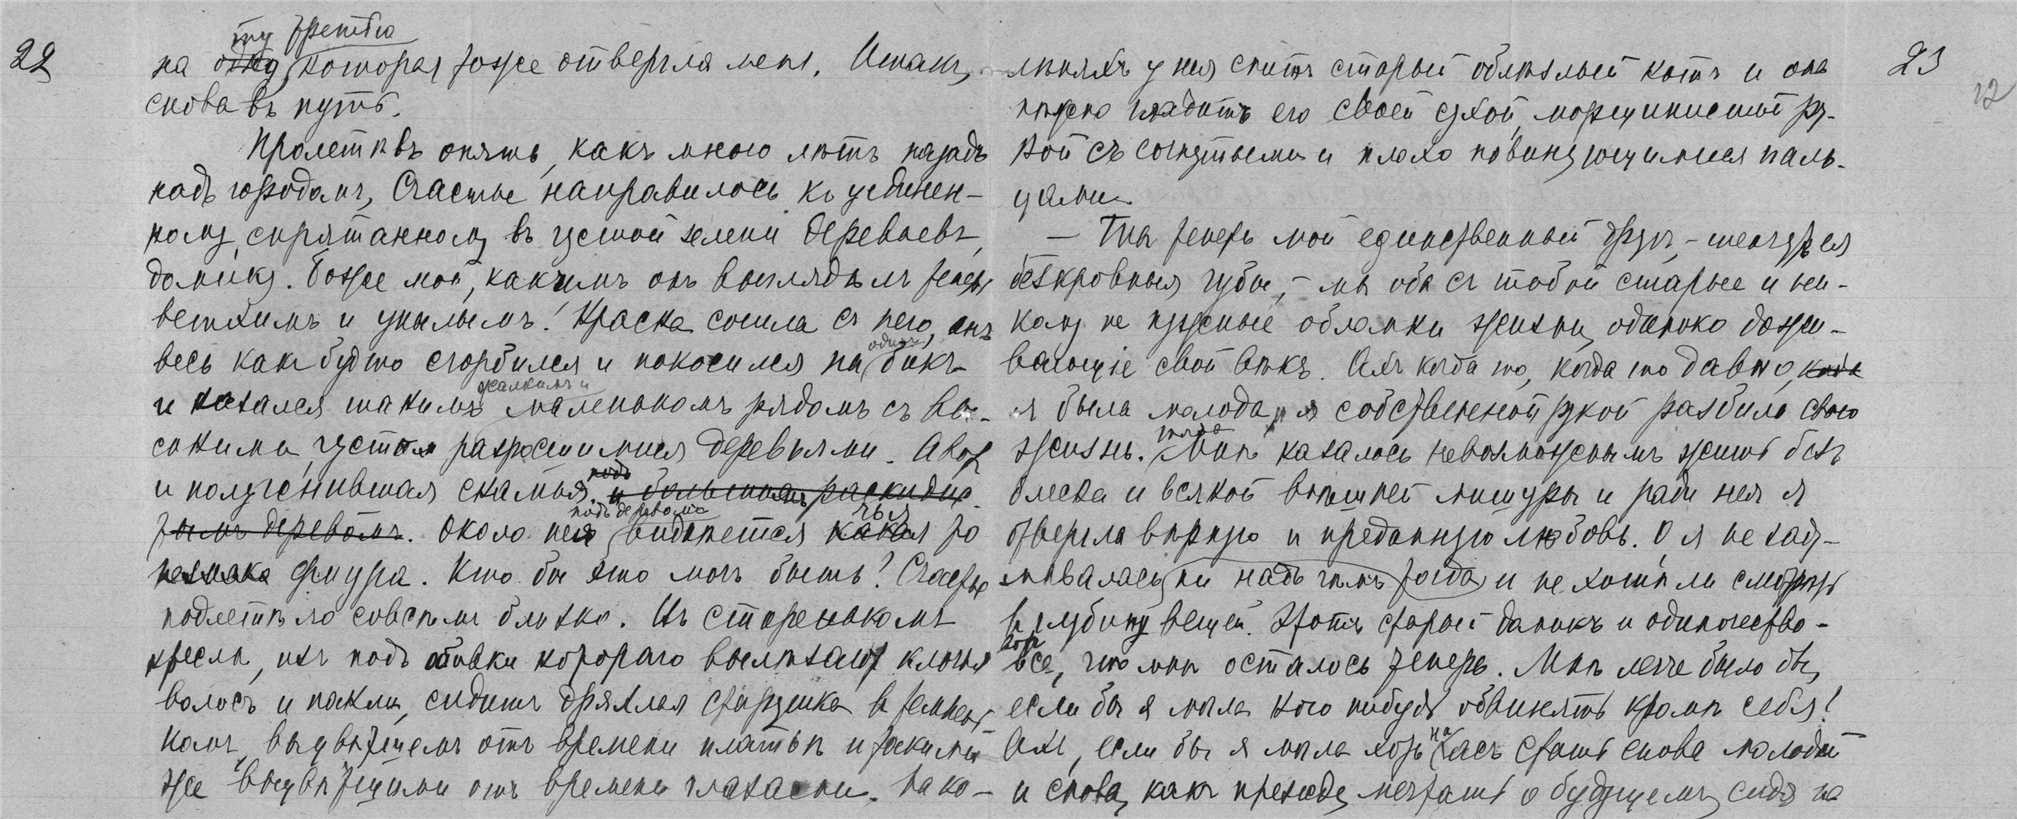 22
ту третью
на одну, которая тоже отвергла меня. Итакъ,
снова въ путь.
Пролетѣвъ опять, какъ много лѣтъ назадъ
надъ городомъ, Счастье направилось къ уединен-
ному, спрятанному въ густой зелени деревьевъ,
домику. Боже мой, какимъ онъ выглядѣлъ теперь
ветхимъ и унылымъ! Краска сошла съ него, онъ
весь какъ будто сгорбился и покосился на одинъ бокъ
и казался такимъ жалкимъ и маленькомъ рядомъ съ вы-
сокими, густо разросшимися деревьями. А вотъ
и полусгнившая скамья подъ и большимъ раскидис
тымъ деревомъ. подъ деревомъ Около нея виднѣется какая чья то
фигура. Кто бы это могъ быть? Счастье
подлетѣло совсѣмъ близко. Въ старенькомъ
креслѣ, изъ подъ обивки котораго вылѣзаютъ клочья
волосъ и пакли, сидитъ дряхлая старушка въ темнень
комъ, выцвѣтшемъ отъ времени платьѣ и такими
же выцвѣтшими отъ времени глазами. На ко-
23
12
лѣняхъ у нея спитъ старый облѣзлый котъ и она
нѣжно гладитъ его своей сухой, морщинистой ру-
кой съ согнутыми и плохо повинующимися паль-
цами.
— Ты теперь мой единственный другъ, – шепчутъ ея
безкровныя губы, – мы оба съ тобой старые и ни-
кому не нужные обломки жизни, одиноко дожи-
вающіе свой вѣкъ. Ахъ когда то, когда то давно, когда
я была молода, я собственной рукой разбила свою
жизнь. Мнѣ тогда казалось невозможнымъ жить безъ
блеска и всякой внѣшней мишуры и ради нея я
отвергла вѣрную и преданную любовь. О я не заду-
мывалась ни надъ чѣмъ тогда и не хотѣла смотрѣть
въ глубину вещей. Этотъ старый домикъ и одиночество –
вотъ все, что мнѣ осталось теперь. Мнѣ легче было бы,
если бы я могла кого нибудь обвинять кромѣ себя!
Ахъ, если бы я могла хоть на часъ стать снова молодой
и снова, какъ прежде, мечтать о будущемъ, сидя на